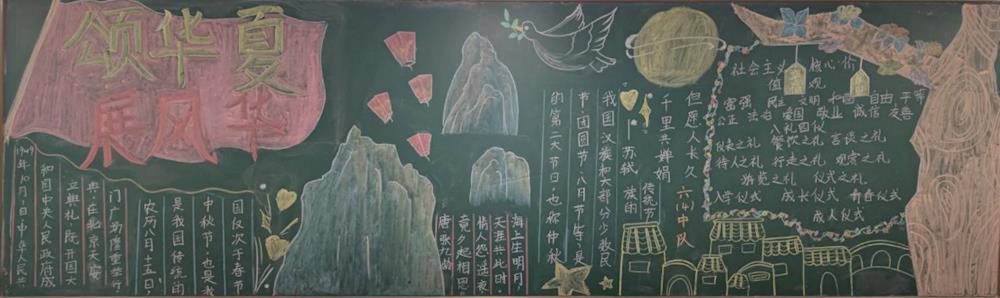 颂华夏
展风华
1949年10月1日中华人民共
和国中央人民政府成
立典礼既开国大
典,在北京天安
门广场隆重举行
农历八月十五日,
是我国传统的
中秋节,也是我
国仅次于春节
的第二大节日,也称仲秋
节团圆节、八月节等,是
我国汉族和大部分少数民
族的
传统节
海上生明月,
天涯共此时,
情人怨遥夜
竟夕起相思
唐 张九龄
但愿人长久
千里共婵娟
——苏轼
六(4)中队
社会主义 核心价
值 观
富强 民主 文明 和谐 自由 平等
公正 法治 爱国 敬业 诚信 友善
八礼四仪
仪表之礼 餐饮之礼 言谈之礼
待人之礼 行走之礼 观赏之礼
游览之礼 仪式之礼
入学仪式 成长仪式 青春仪式
成人仪式